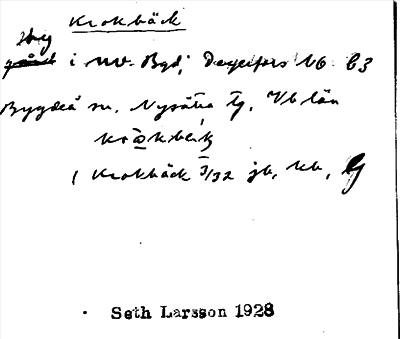 Krokbäck
by
i nv. Bgd; Degerfors Vb B3
Bygdeå sn. Nysätra tg. Vb län
Krokbäck 3/32 jb, kb, G
Seth Larsson 1928